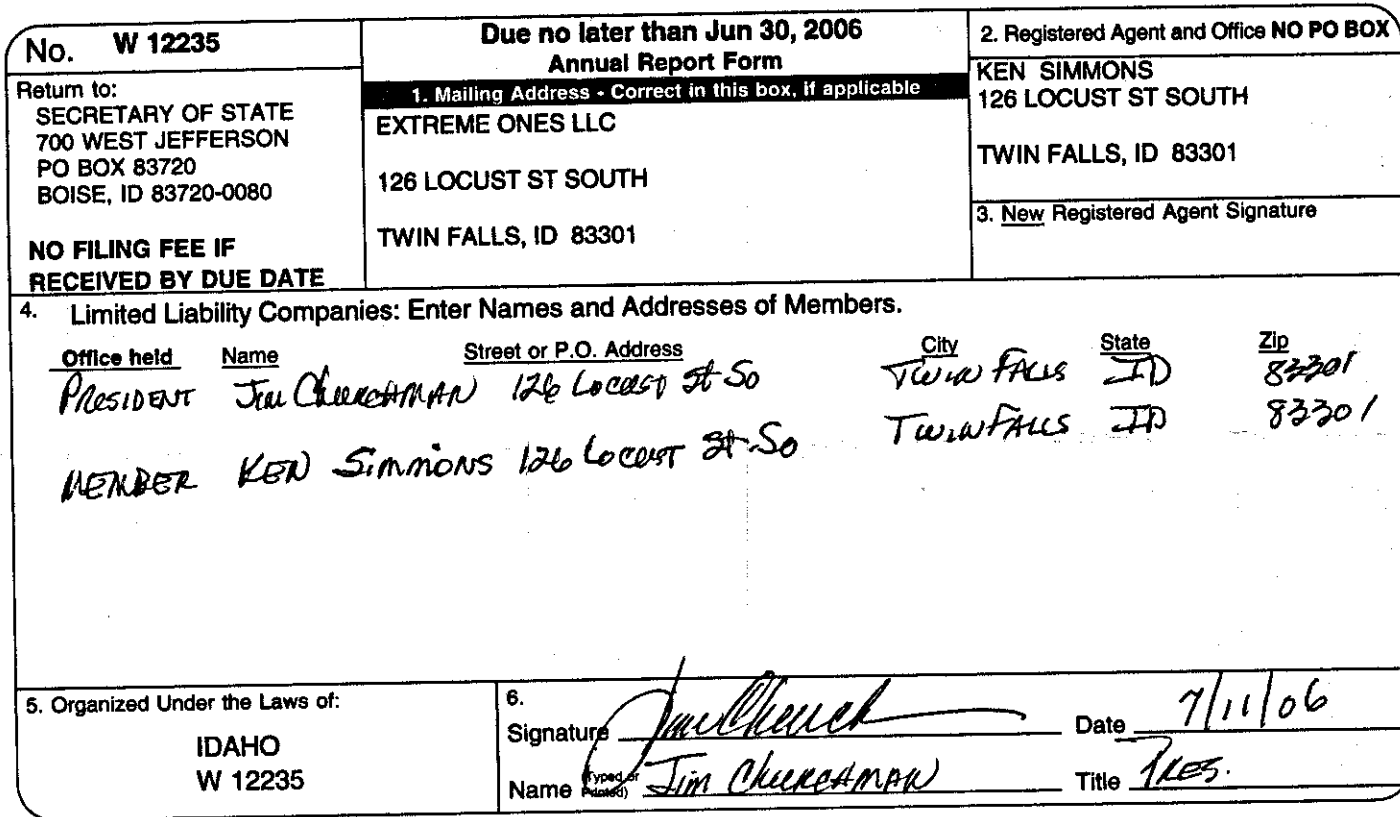 No. W 12235
Return to:
SECRETARY OF STATE
700 WEST JEFFERSON
PO BOX 83720
BOISE, ID 83720-0080
NO FILING FEE IF
RECEIVED BY DUE DATE
Due no later than Jun 30, 2006
Annual Report Form
1. Mailing Address - Correct in this box, if applicable
EXTREME ONES LLC
126 LOCUST ST SOUTH
TWIN FALLS, ID 83301
2. Registered Agent and Office NO PO BOX
KEN SIMMONS
126 LOCUST ST SOUTH
TWIN FALLS, ID 83301
3. New Registered Agent Signature
4. Limited Liability Companies: Enter Names and Addresses of Members.
Office held Name Street or P.O. Address City State Zip
PRESIDENT Jim CHURCHMAN 126 Locust St So TWIN FALLS ID 83301
MEMBER KEN SIMMONS 126 Locust St So TWIN FALLS ID 83301
5. Organized Under the Laws of:
IDAHO
W 12235
6.
Signature Jim Church Date 7/11/06
Name (Typed or Printed) Jim CHURCHMAN Title PRES.